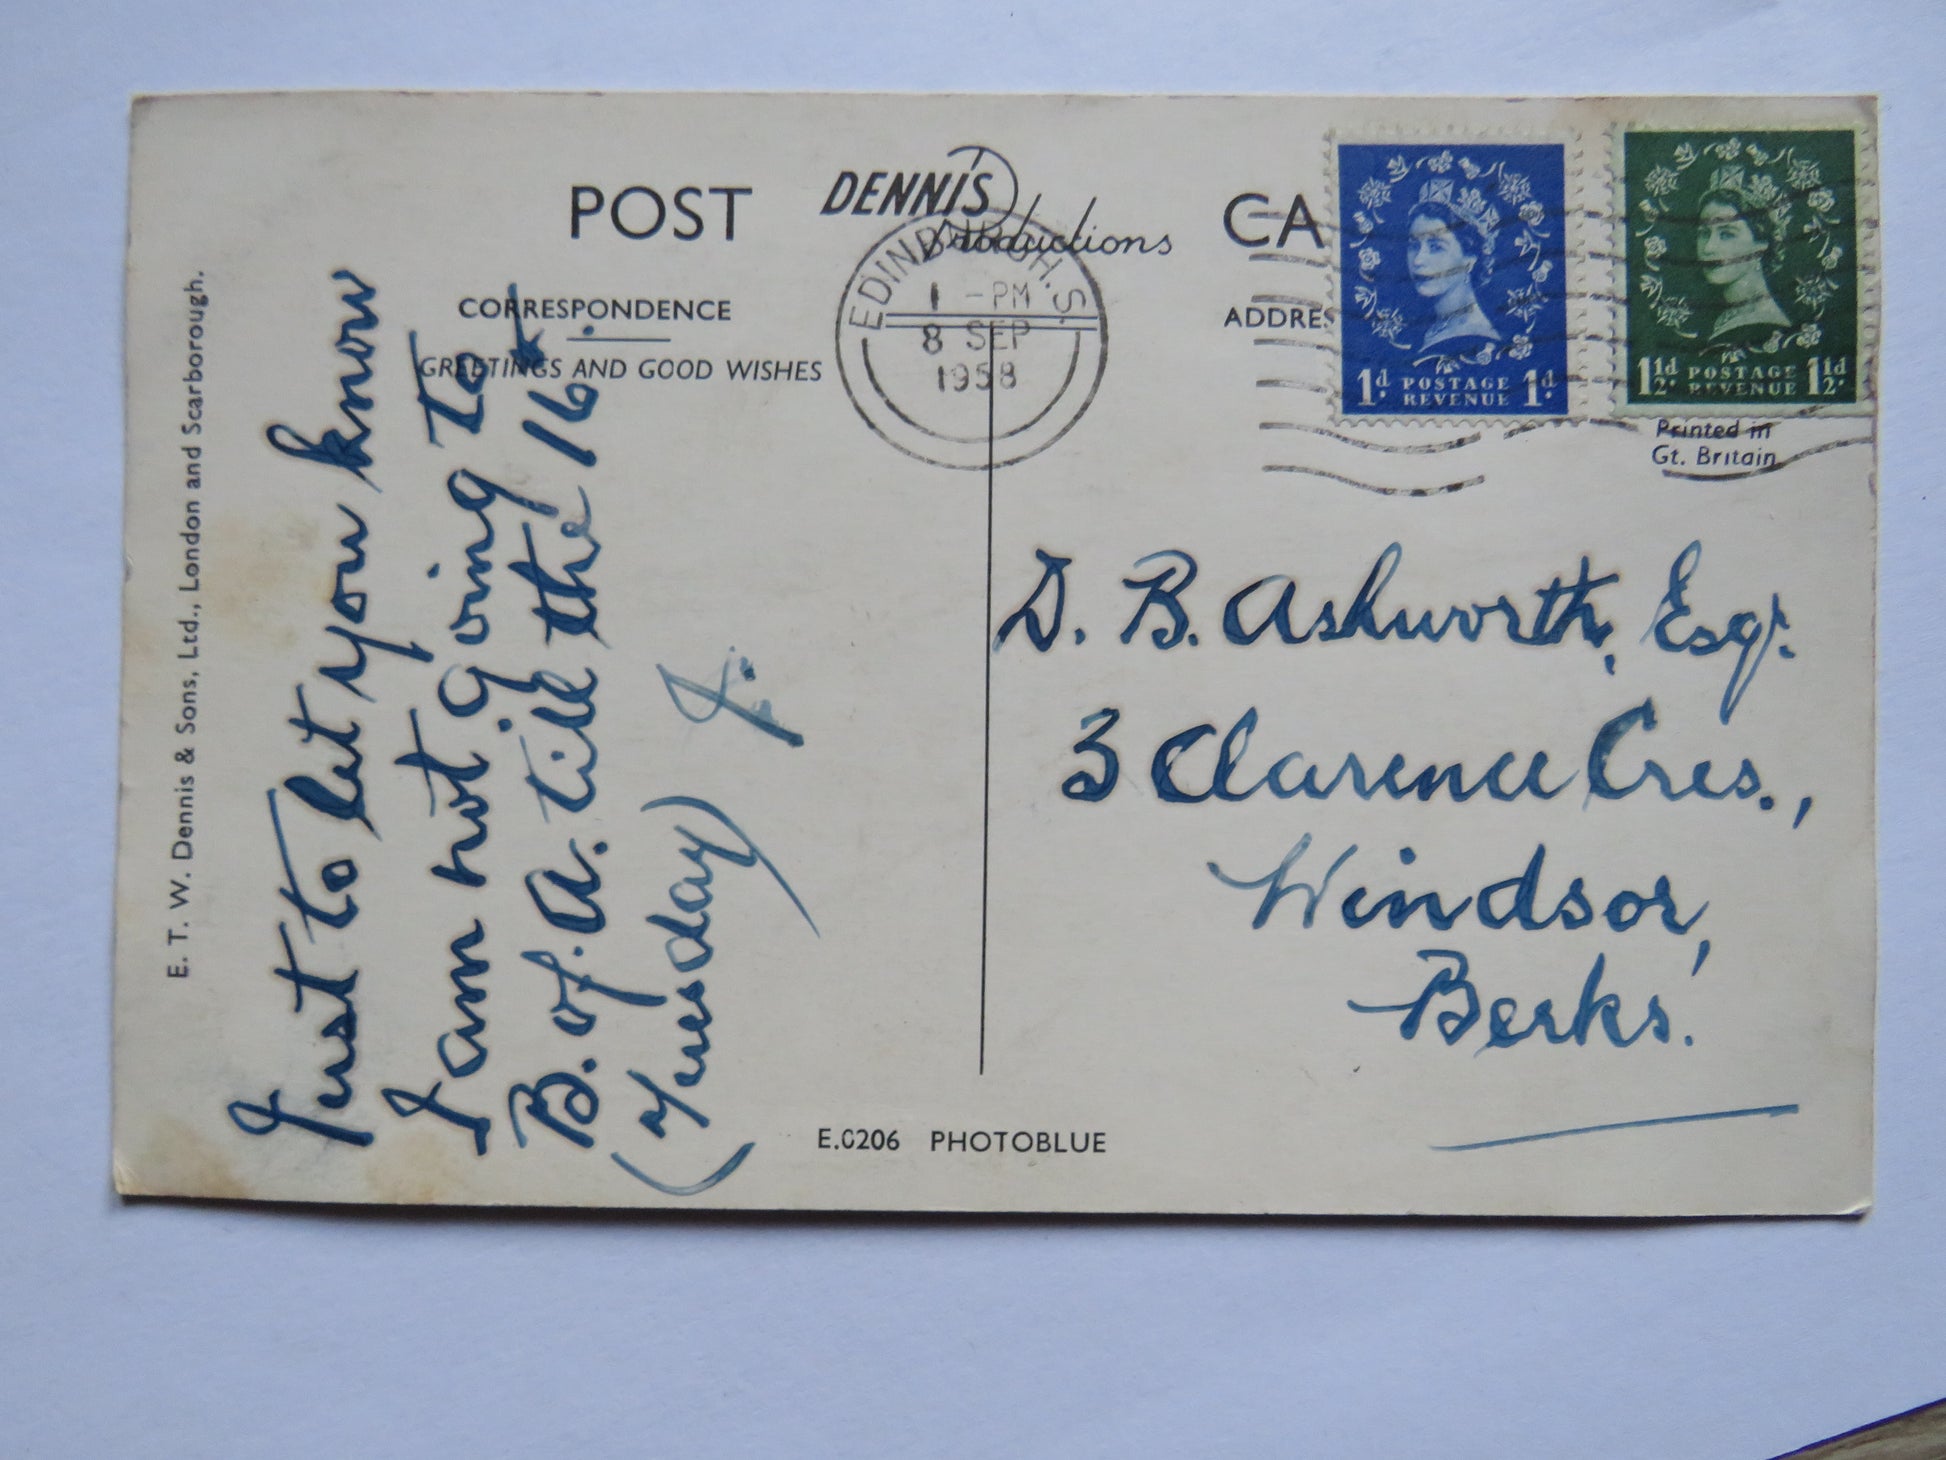 POST DENNIS Productions CA
CORRESPONDENCE
GREETINGS AND GOOD WISHES
ADDRE
EDINBURGH. S.
1 - PM
8 SEP
1958
1d. POSTAGE REVENUE 1d.
1½d. POSTAGE REVENUE 1½d.
Printed in
Gt. Britain
E. T. W. Dennis & Sons, Ltd., London and Scarborough.
Just to let you know
I am not going to
B. of. A. till the 16th.
(Tuesday) J.
D. B. Ashworth, Esq.
3 Clarence Cres.,
Windsor,
Berks.
E.0206 PHOTOBLUE